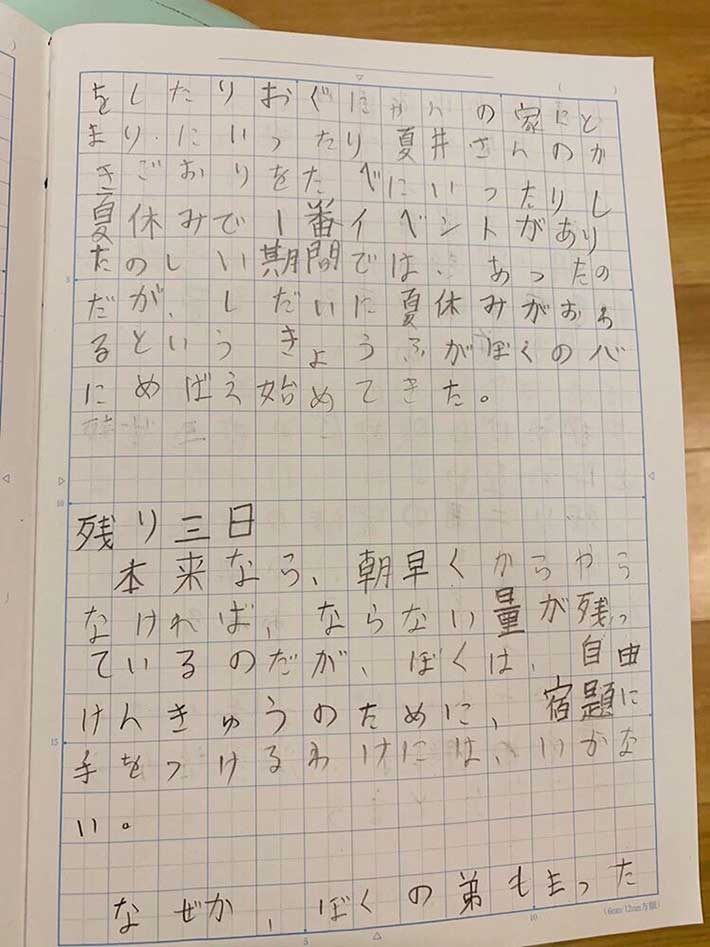 をしたりおぐにゃんの家にと
まり、にいったり夏井さんのか
きごおりをたべにいったりし
夏休みで一番イベントがあり
たのしい期間では、あったの
だが、しだいに夏休みがおわ
るというきょうふがぼくの心
にめばえ始めてきた。
残り三日
本来なら、朝早くからやら
なければ、ならない量が残っ
ているのだが、ぼくは、自由
けんきゅうのために、宿題に
手をつけるわけには、いかな
い。
なぜか、ぼくの弟もまった
(6mm/12mm方眼)